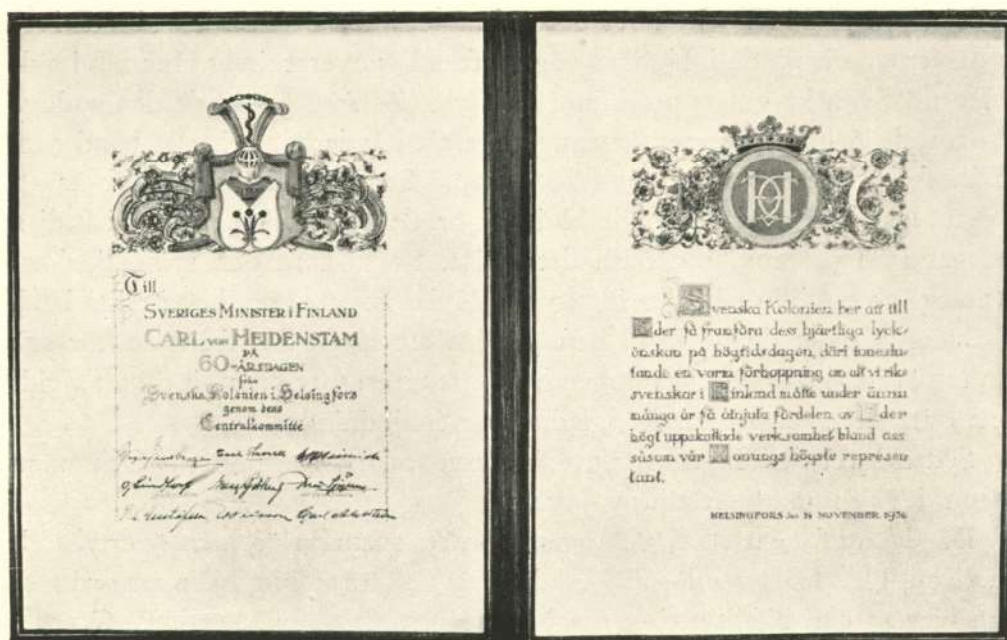 Till
SVERIGES MINISTER I FINLAND
CARL von HEIDENSTAM
PÅ
60-ÅRSDAGEN
från
Svenska Kolonien i Helsingfors
genom dess
Centralkommitté
Svenska Kolonien ber att till
Eder få framföra dess hjärtliga lyck-
önskan på högtidsdagen, däri inneslu-
tande en varm förhoppning om att vi riks
svenskar i Finland måtte under ännu
många år få åtnjuta fördelen av Eder
högt uppskattade verksamhet bland oss
såsom vår Konungs högste represen
tant.
HELSINGFORS den NOVEMBER 1936